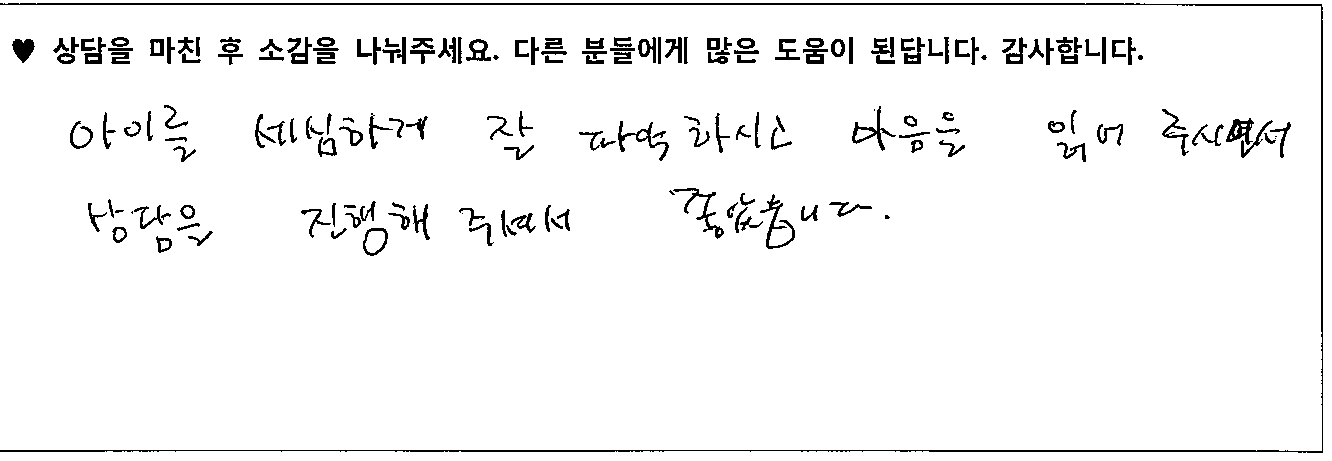 ♥ 상담을 마친 후 소감을 나눠주세요. 다른 분들에게 많은 도움이 된답니다. 감사합니다.
아이를 세심하게 잘 파악하시고 마음을 읽어 주시면서
상담을 진행해 주셔서 좋았습니다.